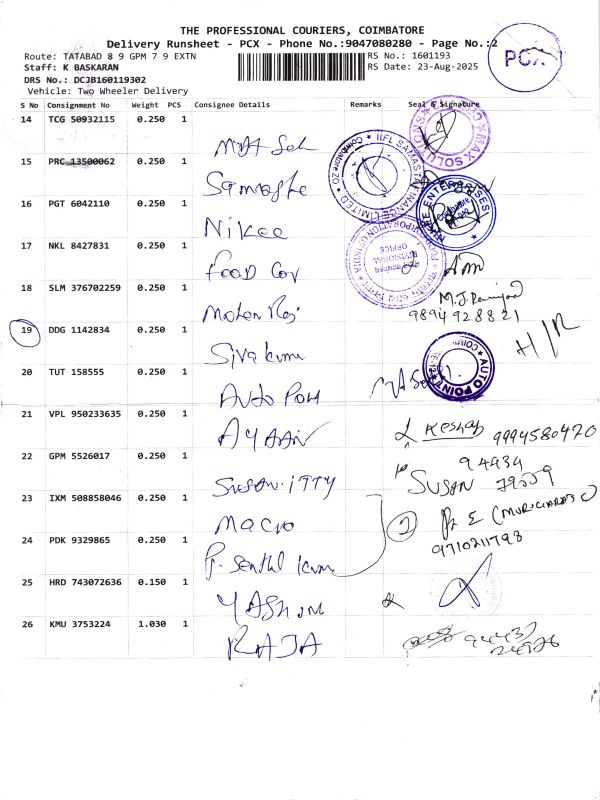 THE PROFESSIONAL COURIERS, COIMBATORE
Delivery Runsheet - PCX - Phone No.:9047080280 - Page No.:2
PCX
Route: TATABAD 8 9 GPM 7 9 EXTN
RS No.: 1601193
Staff: K BASKARAN
RS Date: 23-Aug-2025
DRS No.: DC3B160119302
Vehicle: Two Wheeler Delivery
S No Consignment No Weight PCS Consignee Details Remarks Seal & Signature
14 TCG 50932115 0.250 1
MAX SOLUTIONS
15 PRC 13500062 0.250 1
IIFL SAMASTA FINANCE LIMITED
16 PGT 6042110 0.250 1
Nikee
NIKEE ENTERPRISES
17 NKL 8427831 0.250 1
Food Cor
FOOD CORPORATION OF INDIA
DIVISIONAL OFFICE
18 SLM 376702259 0.250 1
Mohan Raj
M.J.
9894928821
19 DDG 1142834 0.250 1
Siva kumar
H/R
20 TUT 158555 0.250 1
Auto Poin
AUTO POINT
21 VPL 950233635 0.250 1
AYAAN
Keshav 9994580470
22 GPM 5526017 0.250 1
Susan itty
94434
SUSAN
23 IXM 508858046 0.250 1
Macro
24 PDK 9329865 0.250 1
P. Senthil kum
9710211798
25 HRD 743072636 0.150 1
26 KMU 3753224 1.030 1
RAJA
94437
24926